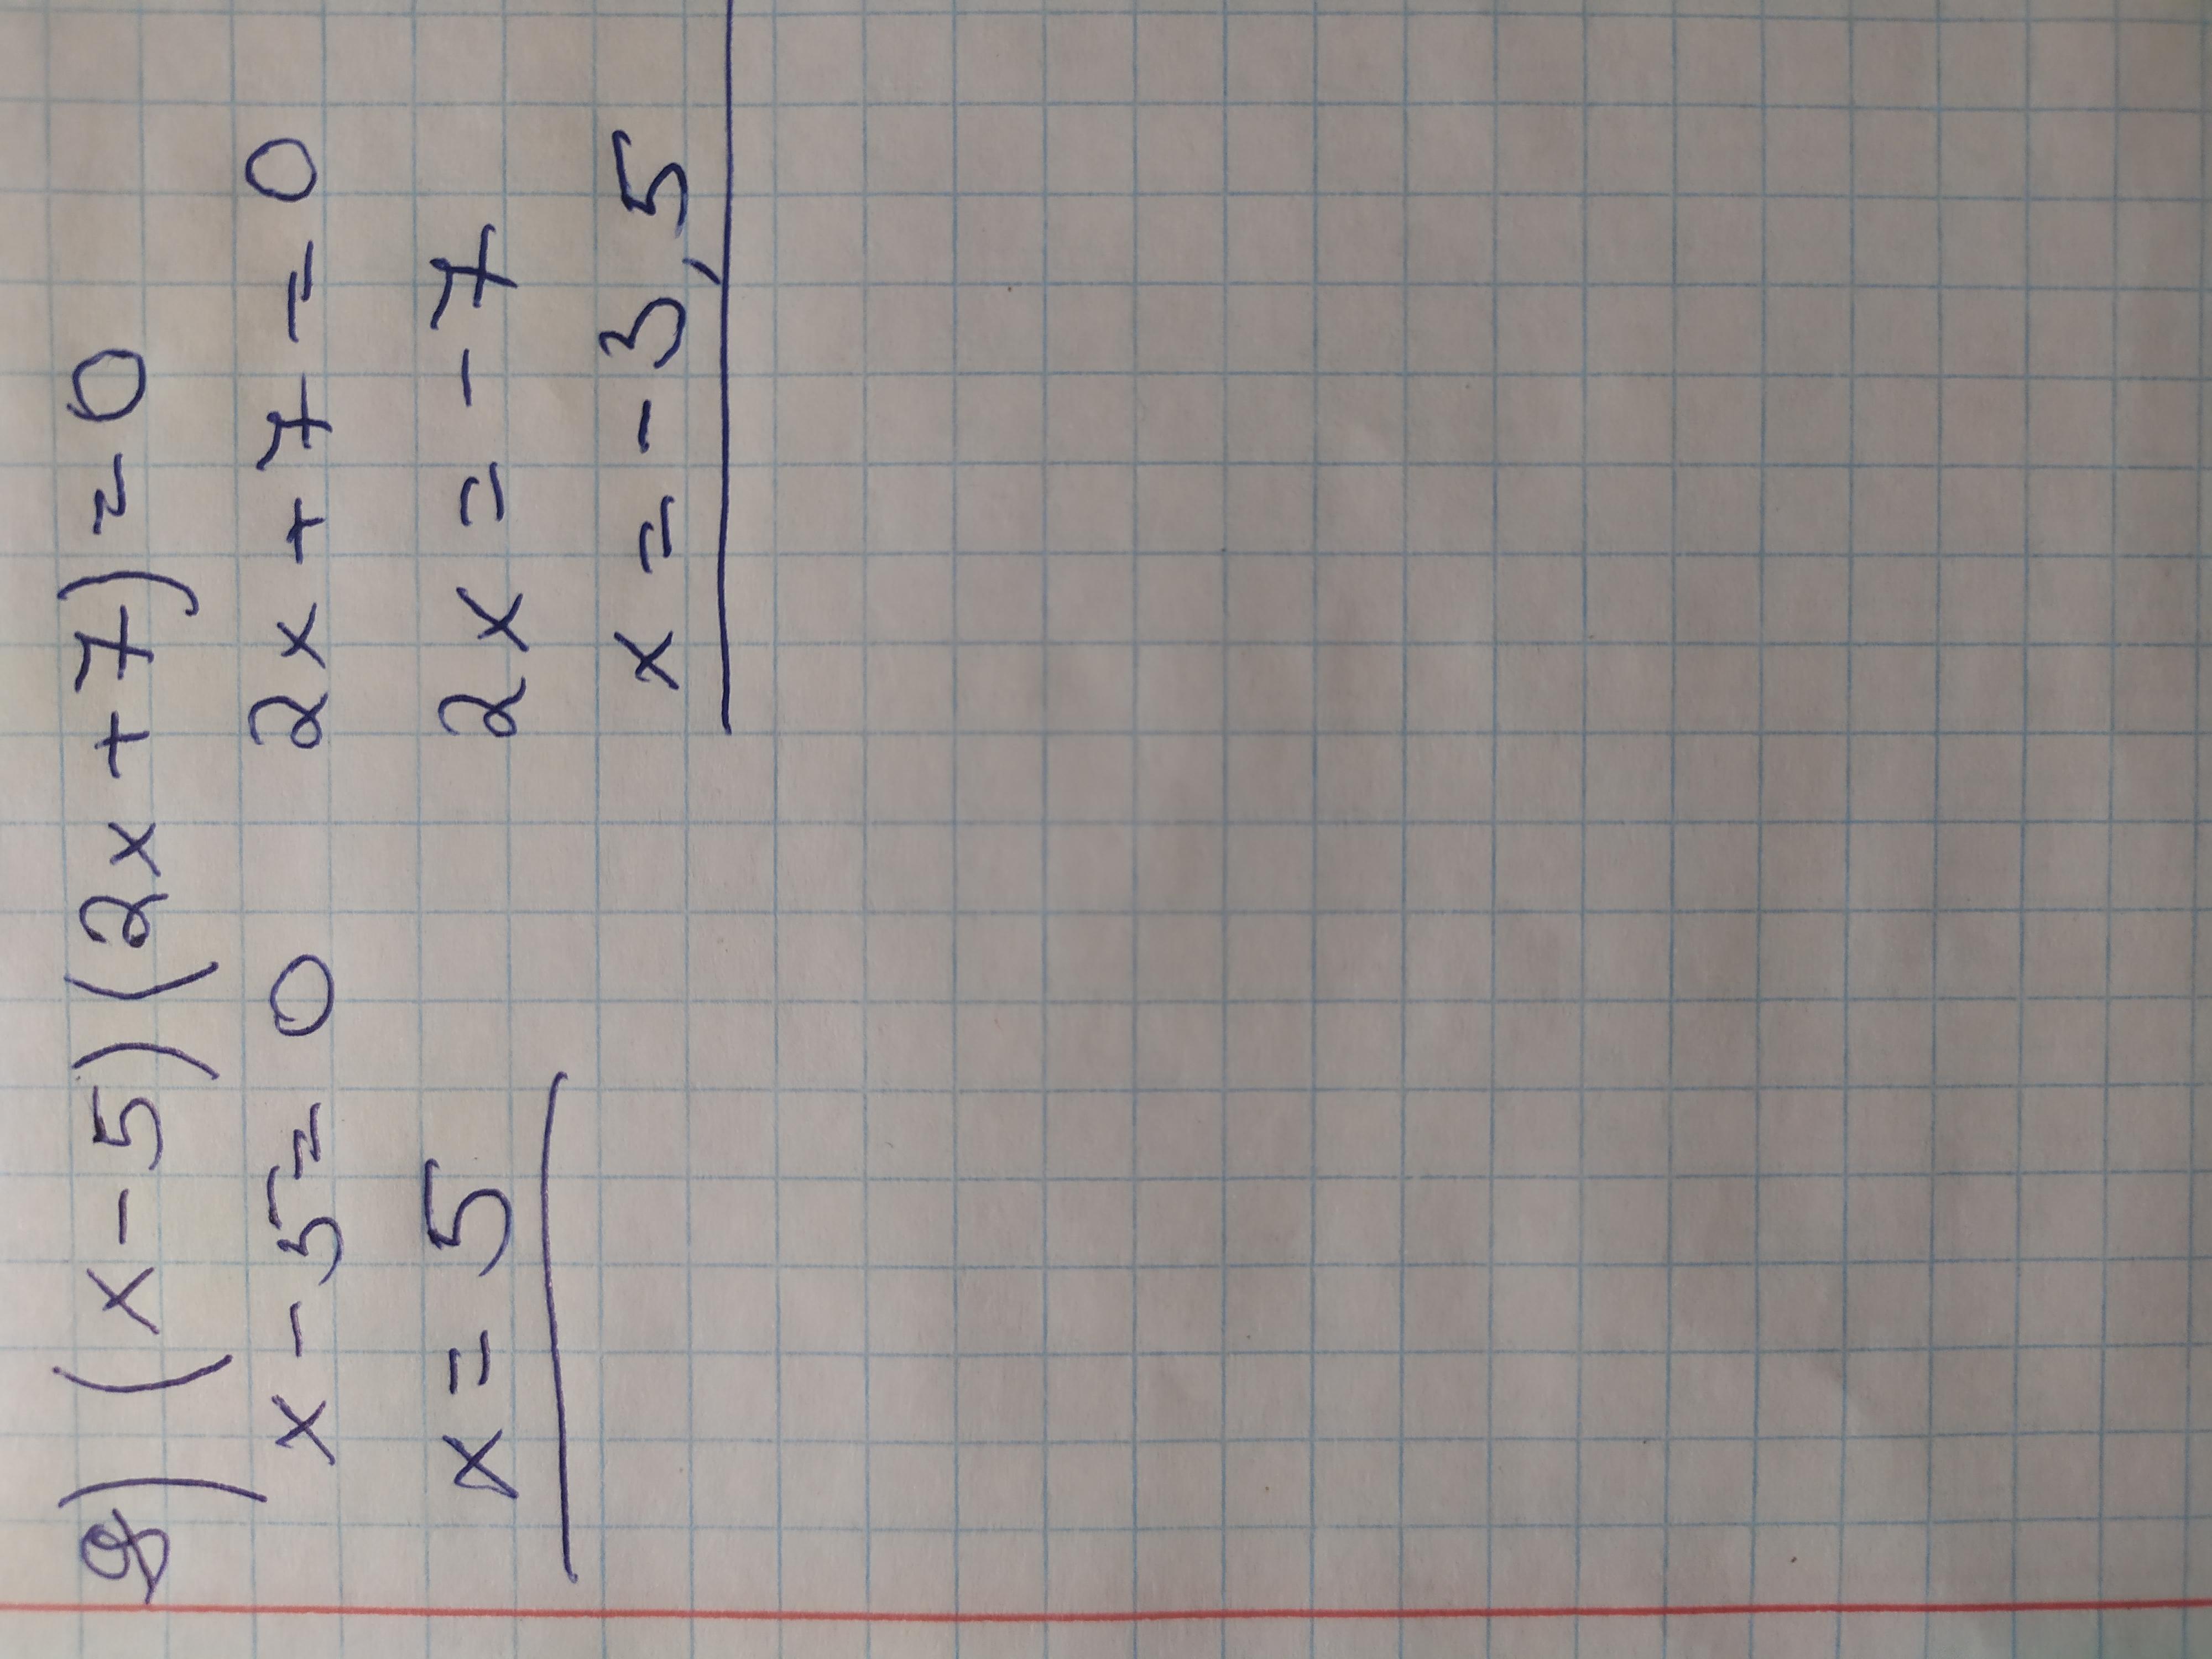 д) (x-5)(2x+7)=0
x-5=0 2x+7=0
x=5 2x=-7
x=-3,5